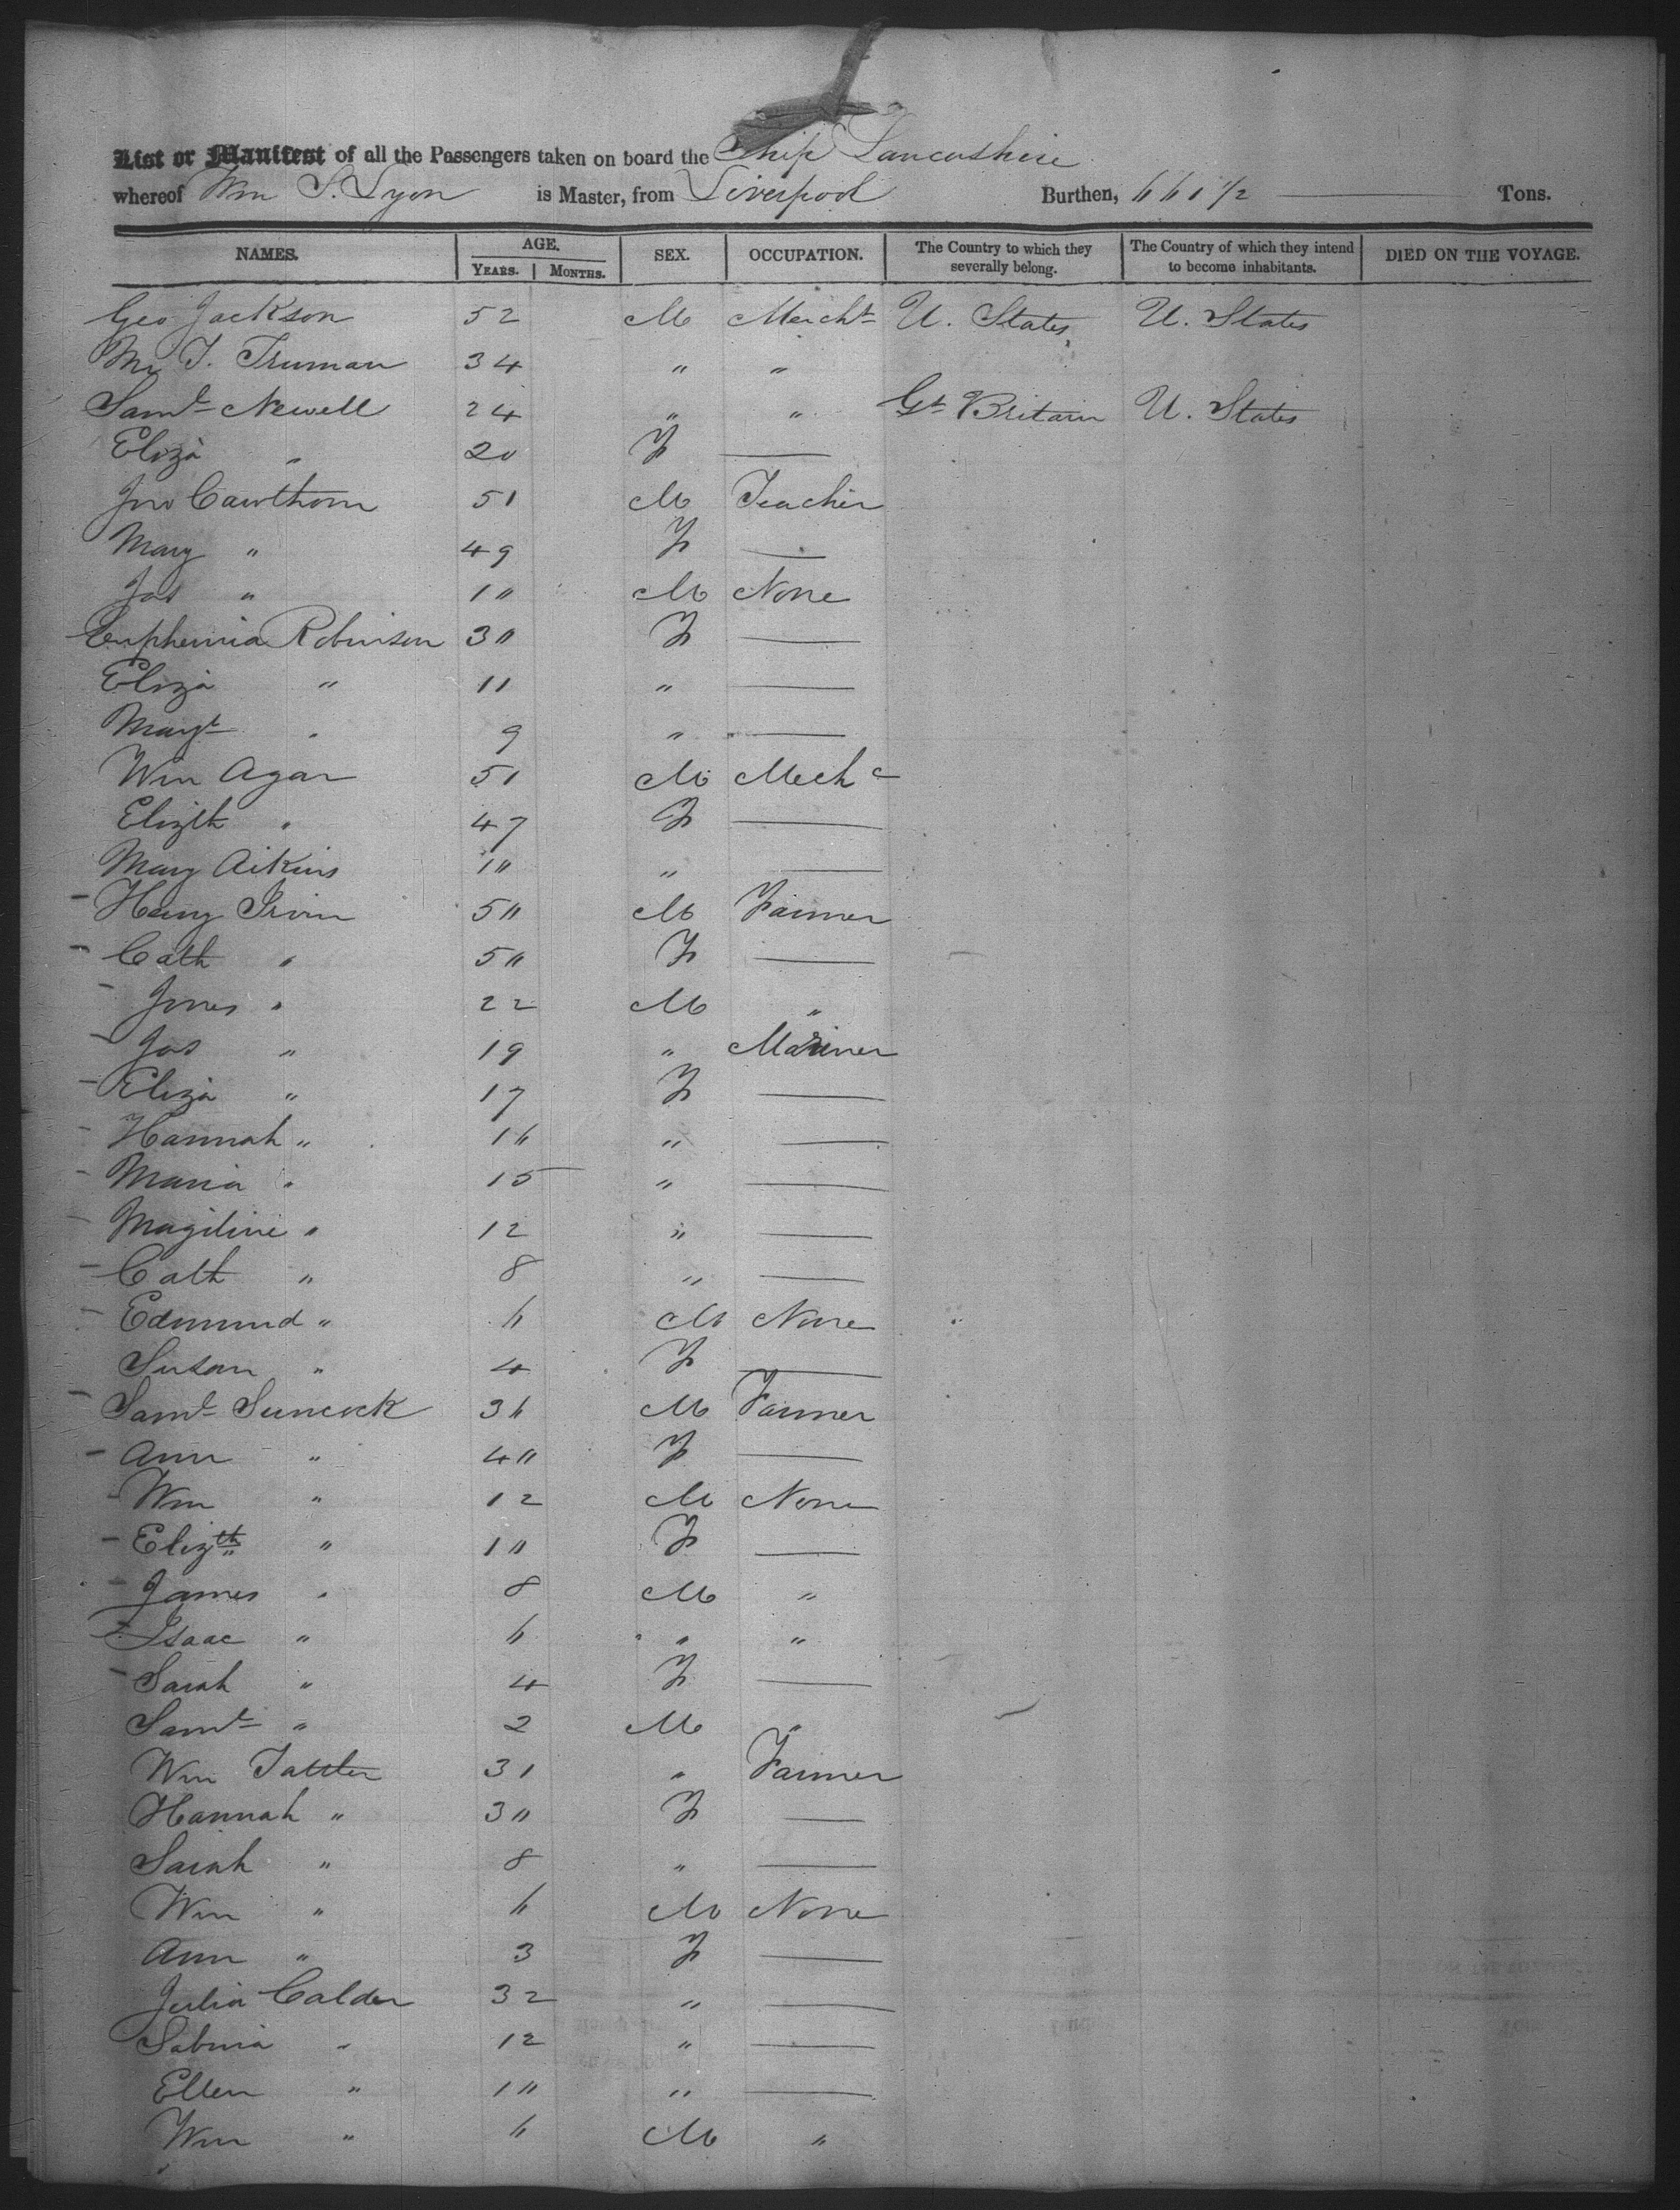 List or Manifest of all the Passengers taken on board the Ship Lancashire
whereof Wm S. Lyon is Master, from Liverpool Burthen, 661 1/2 Tons.
NAMES. AGE. YEARS. MONTHS. SEX. OCCUPATION. The Country to which they severally belong. The Country of which they intend to become inhabitants. DIED ON THE VOYAGE.
Geo Jackson 52 M Mercht U. States U. States
Mr J. Truman 34 " "
Saml Newell 24 " " Gt Britain U. States
Eliza " 20 F —
Jno Cawthorn 51 M Teacher
Mary " 49 F —
Jas " 10 M None
Euphemia Robinson 30 F —
Eliza " 11 " —
Margt " 9 " —
Wm Agar 51 M Mechc
Elizth " 47 F —
Mary Aikins 10 " —
Henry Irvin 50 M Farmer
Cath " 50 F —
Jones " 22 M "
Jas " 19 " Mariner
Eliza " 17 F —
Hannah " 16 " —
Maria " 15 " —
Magiline " 12 " —
Cath " 8 " —
Edmund " 6 M None
Susan " 4 F —
Saml Suncock 36 M Farmer
Ann " 40 F —
Wm " 12 M None
Elizth " 10 F —
James " 8 M "
Isaac " 6 " "
Sarah " 4 F —
Saml " 2 M "
Wm Tattler 31 " Farmer
Hannah " 30 F —
Sarah " 8 " —
Wm " 6 M None
Ann " 3 F —
Julia Calder 32 " —
Sabina " 12 " —
Ellen " 10 " —
Wm " 6 M "